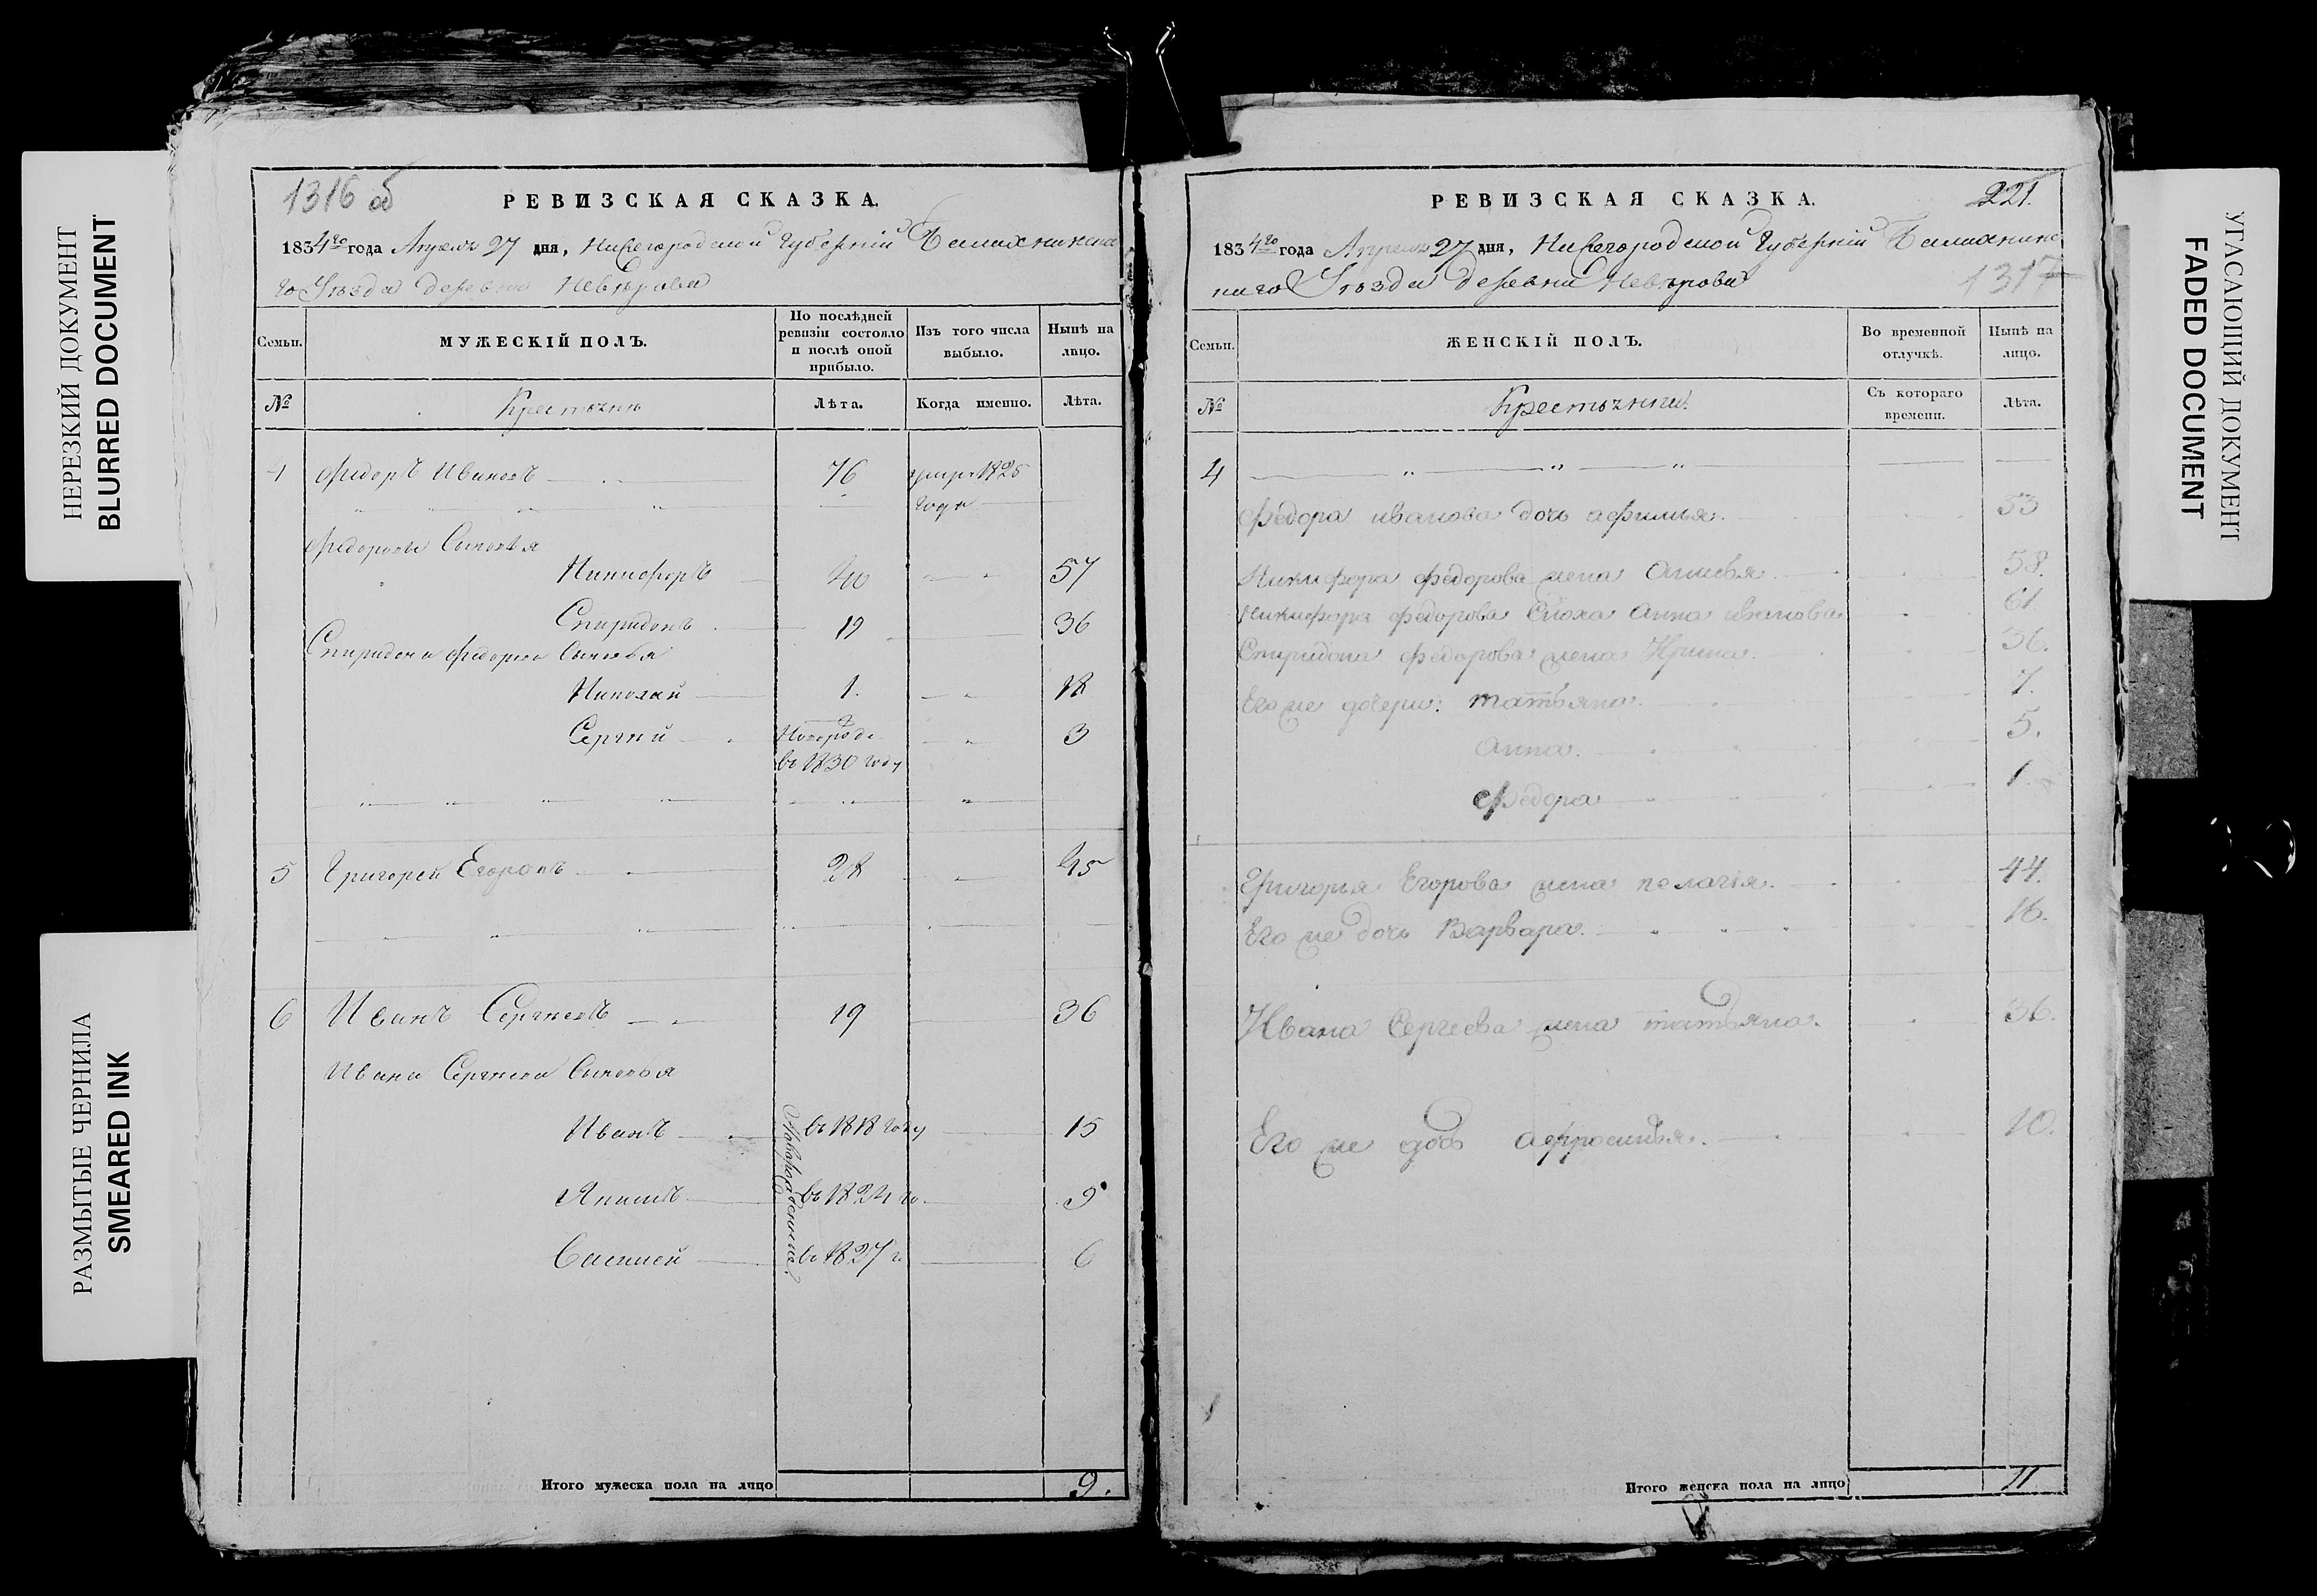 НЕРЕЗКИЙ ДОКУМЕНТ
BLURRED DOCUMENT
РАЗМЫТЫЕ ЧЕРНИЛА
SMEARED INK
1316 об
РЕВИЗСКАЯ СКАЗКА.
1834го года Апреля 27 дня, Нижегородской Губернiи Балахнинска
го Уѣзда деревни Невѣрова
Семьи.
МУЖЕСКIЙ ПОЛЪ.
По послѣдней ревизiи состояло и послѣ оной прибыло.
Изъ того числа выбыло.
Нынѣ на лицо.
№
Крестьяне
Лѣта.
Когда именно.
Лѣта.
4 Федоръ Ивановъ 76 умре 1825
года
Федоровы Сыновья
Никифоръ 40 57
Спиридонъ 19 36
Спиридона Федорова Сыновья
Николай 1. 18
Сергѣй Новорож 3
въ 1830 году
5 Григорей Егоровъ 28 45
6 Иванъ Сергѣевъ 19 36
Ивана Сергѣева Сыновья
Новорожденные
Иванъ въ 1818 году 15
Якимъ въ 1824 го. 9
Василей въ 1827 г. 6
Итого мужеска пола на лицо 9.
РЕВИЗСКАЯ СКАЗКА.
221.
1834го года Апреля 27 дня, Нижегородской Губернiи Балахнинс
каго Уѣзда деревни Невѣрова
1317
Семьи.
ЖЕНСКIЙ ПОЛЪ.
Во временной отлучкѣ.
Нынѣ на лицо.
№
Крестьянки.
Съ котораго времени.
Лѣта.
4
Федора иванова дочь афимья. 53
Никифора федорова жена Анисья 58.
Никифора федорова сноха Анна иванова 61
Спиридона федорова жена Ирина. 36.
Его же дочери: татьяна. 7.
Анна. 5.
федора 1.
Григорья Егорова жена пелагiя. 44.
Его же дочь Варвара. 16.
Ивана Сергеева жена татьяна. 36.
Его же дочь афросинья. 10.
Итого женска пола на лицо 11
УГАСАЮЩИЙ ДОКУМЕНТ
FADED DOCUMENT